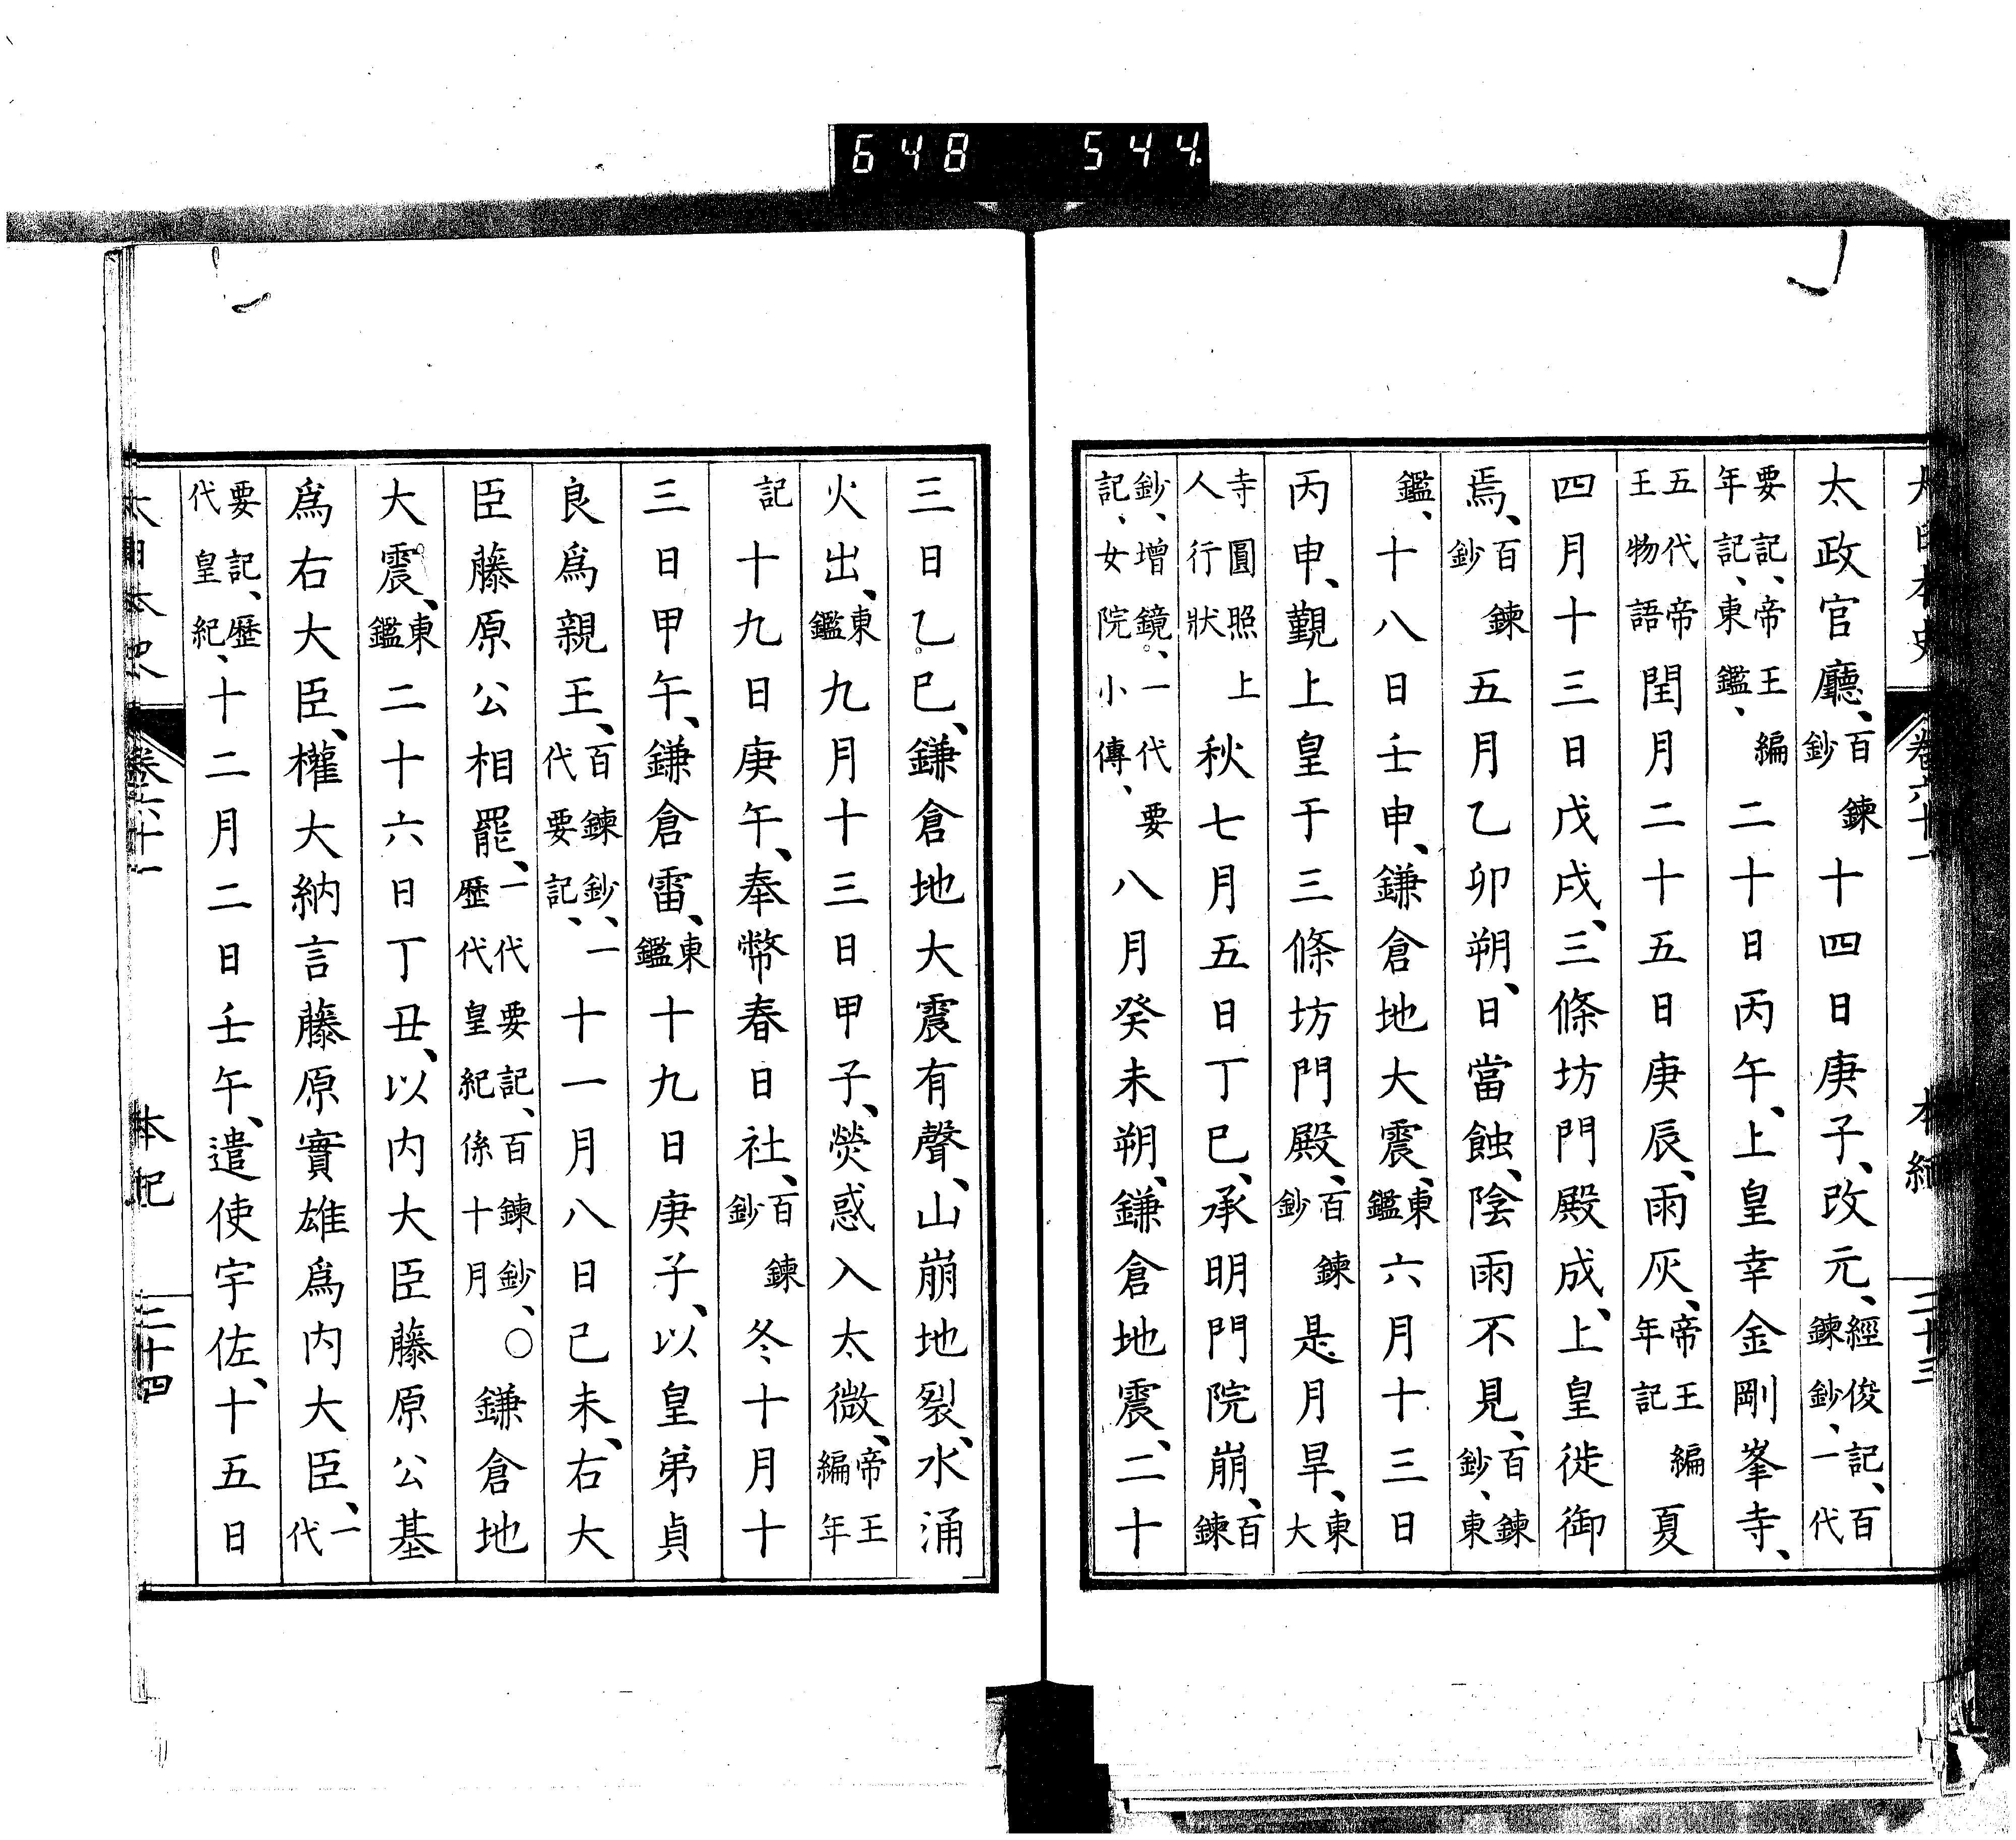 大日本史　卷六十一　本紀　二十三
太政官廳、百鍊鈔十四日庚子、改元、經俊記、百鍊鈔、一代
要記、帝王編年記、東鑑、二十日丙午、上皇幸金剛峯寺、
五代帝王物語閏月二十五日庚辰、雨灰、帝王編年記夏
四月十三日戊戌、三條坊門殿成、上皇徙御
焉、百鍊鈔五月乙卯朔、日當蝕、陰雨不見、百鍊鈔、東
鑑、十八日壬申、鎌倉地大震、東鑑六月十三日
丙申、覲上皇于三條坊門殿、百鍊鈔是月旱、東大
寺圓照上人行狀秋七月五日丁巳、承明門院崩、百鍊
鈔、增鏡、一代要記、女院小傳、八月癸未朔、鎌倉地震、二十
三日乙巳、鎌倉地大震有聲、山崩地裂、水涌
火出、東鑑九月十三日甲子、熒惑入太微、帝王編年
記十九日庚午、奉幣春日社、百鍊鈔冬十月十
三日甲午、鎌倉雷、東鑑十九日庚子、以皇弟貞
良爲親王、百鍊鈔、一代要記、十一月八日己未、右大
臣藤原公相罷、一代要記、百鍊鈔、歷代皇紀係十月○鎌倉地
大震、東鑑二十六日丁丑、以内大臣藤原公基
爲右大臣、權大納言藤原實雄爲内大臣、一代
要記、歷代皇紀、十二月二日壬午、遣使宇佐、十五日
大日本史　卷六十一　本紀　二十四
648 544